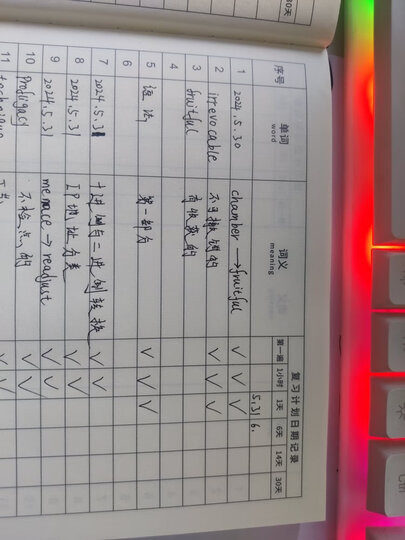 30天
复习计划日期记录
序号 单词 word 词义 meaning 第一遍 1小时 1天 6天 14天 30天
1 2024.5.30 chamber → fruitful ✓ ✓ ✓ 5.31 6.
2 irrevocable 不可撤销的 ✓ ✓ ✓
3 fruitful
4
5 语法 第一部分 ✓ ✓ ✓
6
7 2024.5.31 十进制与二进制转换 ✓ ✓
8 2024.5.31 IP地址分类 ✓ ✓
9 2024.5.31 menace → readjust ✓ ✓
10 Profligacy 不检点的 ✓ ✓
11
Ctrl